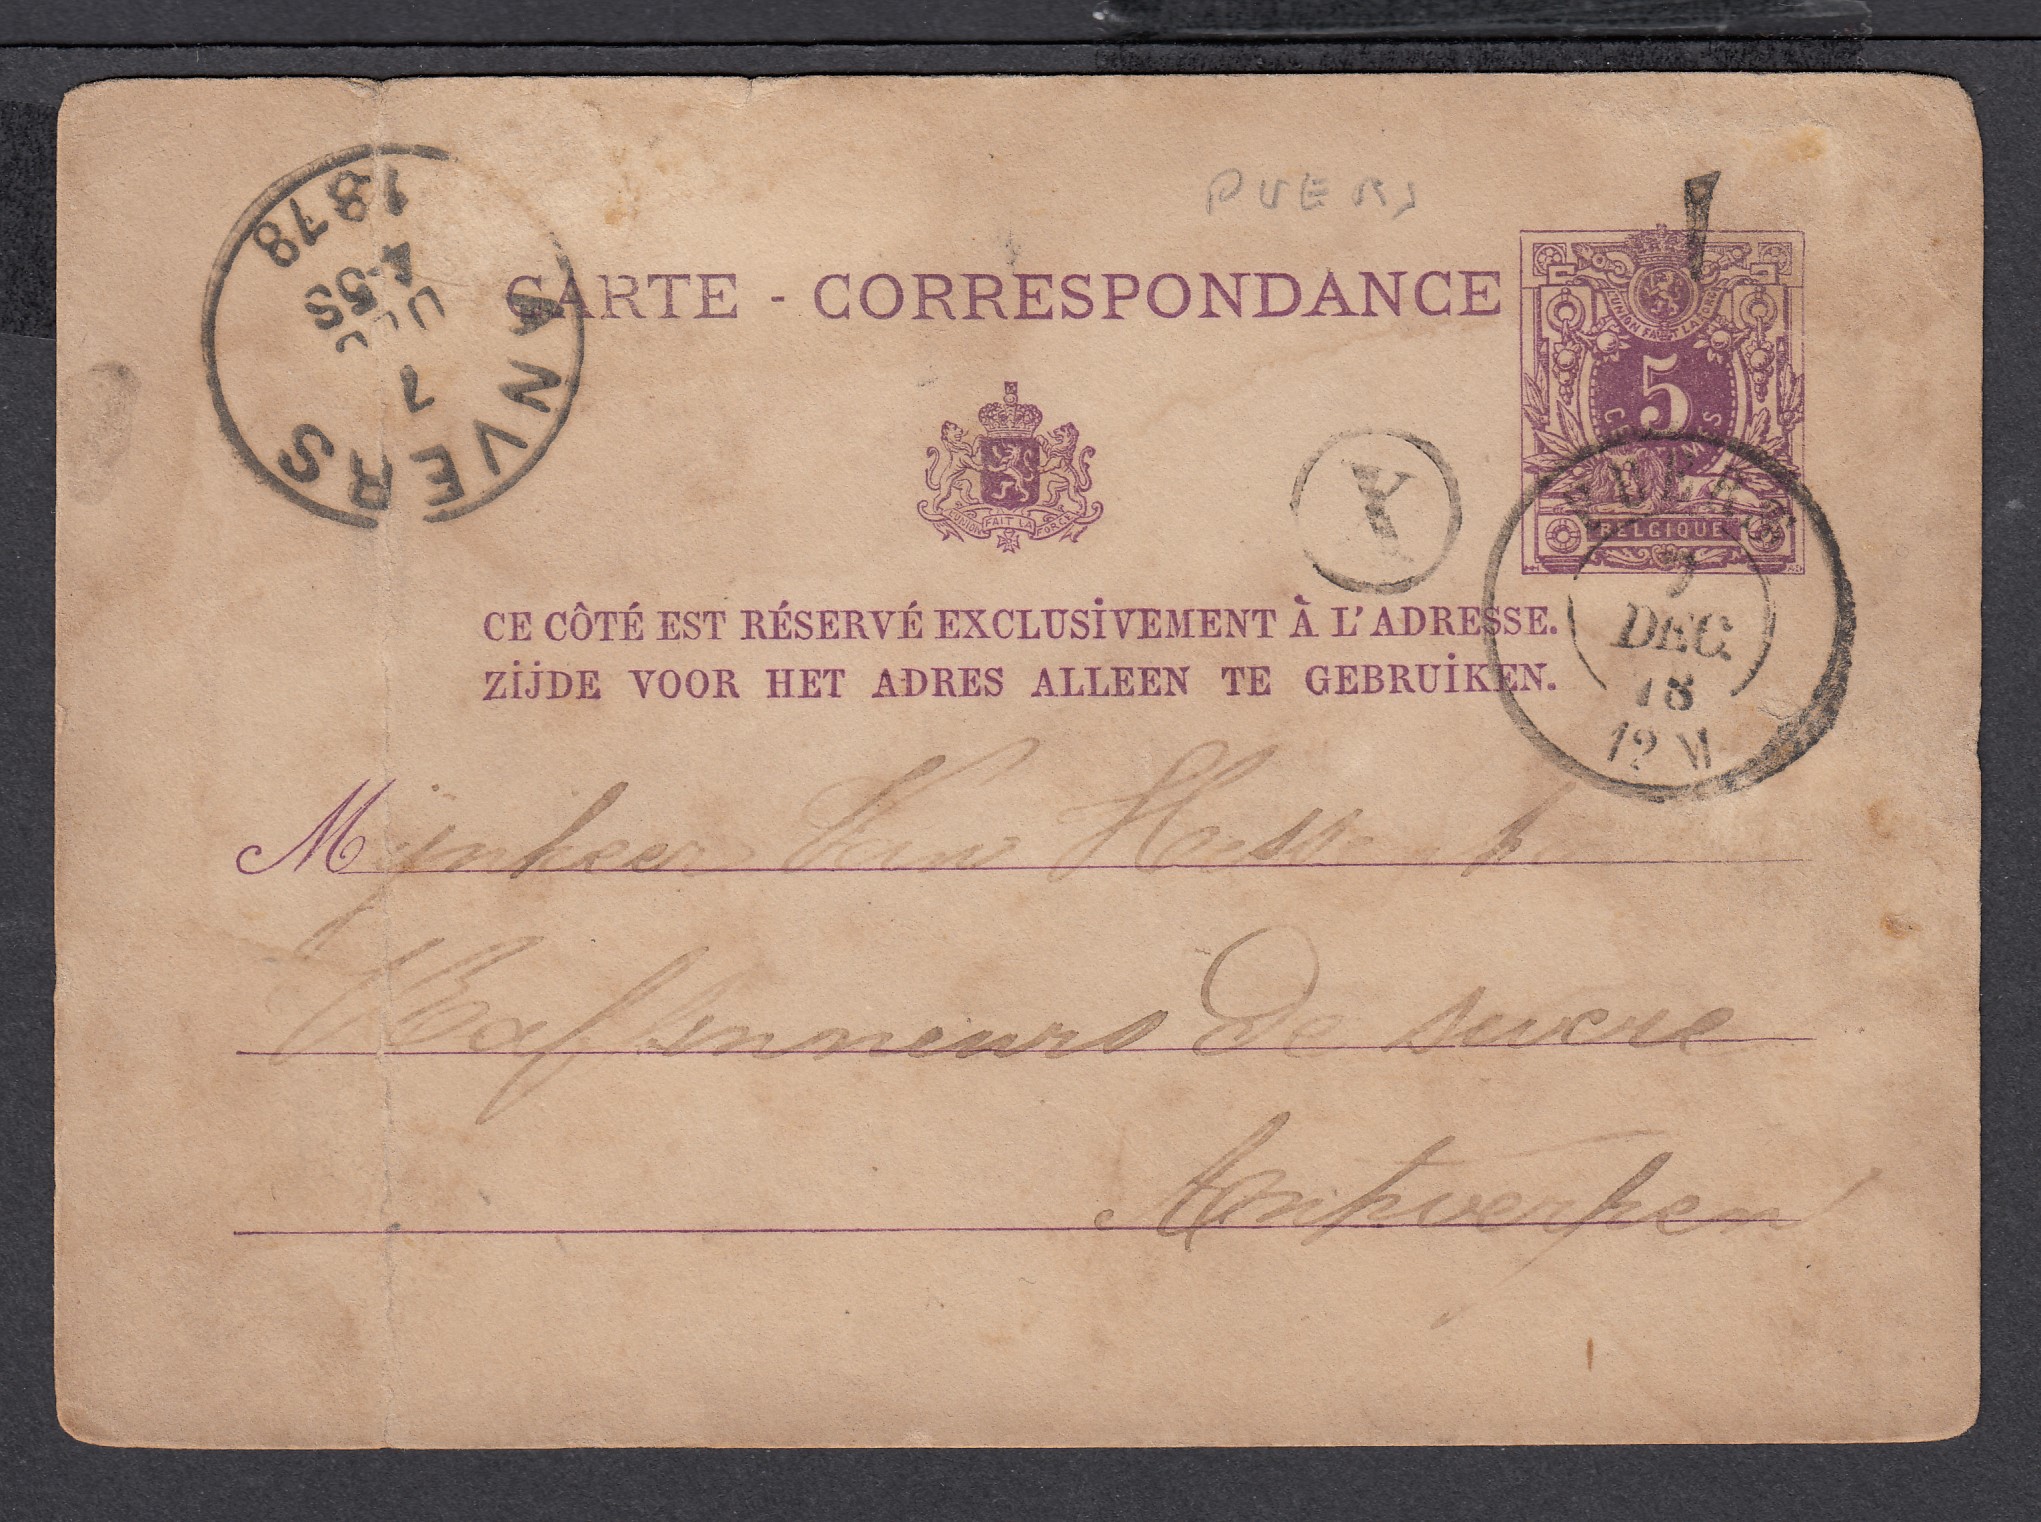 PUERS
CARTE - CORRESPONDANCE
ANVERS
7
DEC
4-5S
1878
L'UNION FAIT LA FORCE
5
CENTIMES
BELGIQUE
L'UNION FAIT LA FORCE
X
PUERS
7
DEC.
78
12 M
CE CÔTÉ EST RÉSERVÉ EXCLUSIVEMENT À L'ADRESSE.
ZIJDE VOOR HET ADRES ALLEEN TE GEBRUIKEN.
Mijnheer Van
Raffenneurs De sucre
Antwerpen